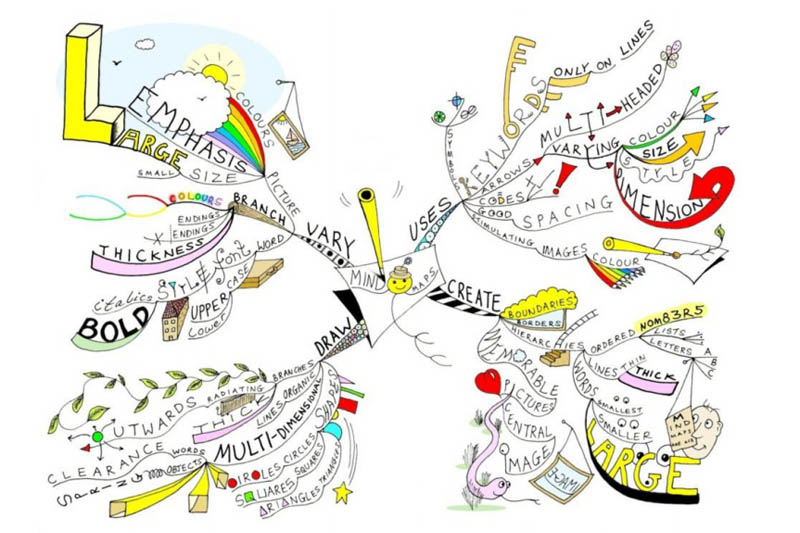 MIND MAPS
VARY
PICTURE
EMPHASIS
LARGE
SMALL SIZE
COLOURS
BRANCH
COLOURS
ENDINGS
ENDINGS
THICKNESS
WORD
font
STYLE
italics
BOLD
UPPER CASE
Lower
USES
SYMBOLS
KEYWORDS
ONLY ON LINES
ARROWS
MULTI-HEADED
VARYING
COLOUR
SIZE
STYLE
DIMENSION
CODES
GOOD SPACING
STIMULATING IMAGES
COLOUR
DRAW
BRANCHES
RADIATING
OUTWARDS
ORGANIC
LINES
THICK
MULTI-DIMENSIONAL
SHAPES
CIRCLES
CIRCLES
SQUARES
SQUARES
TRIANGLES
TRIANGLES
WORDS
CLEARANCE
OBJECTS
SPRING
CREATE
BOUNDARIES
BORDERS
HIERARCHIES
ORDERED
NOM83R5
LISTS
LETTERS
A
B
C
LINES
THIN
THICK
WORDS
SMALLEST
SMALLER
LARGE
MIND MAPS
MEMORABLE
PICTURES
CENTRAL
IMAGE
IMAGE